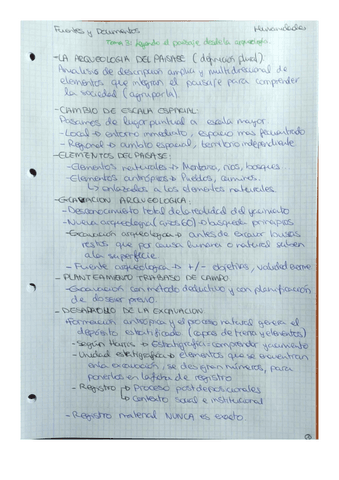 Fuentes y Documentos
Tema 3: Leyendo el paisaje desde la arqueología
-LA ARQUEOLOGIA DEL PAISAJE (definición plural)
Analisis de descripción amplia y multidireccional de
elementos que integran el paisaje para comprender
la sociedad (agruparla).
-CAMBIO DE ESCALA ESPACIAL:
Pasamos de lugar puntual a escala mayor
-Local → entorno inmediato, espacio mas frecuentado
-Regional → ambito espacial, territorio independiente
-ELEMENTOS DEL PAISAJE:
-Elementos naturales → Montaña, rios, bosques
-Elementos antropicos → Pueblos, caminos.
↳ enlazados a los elementos naturales.
-EXCAVACION ARQUEOLOGICA:
-Desconocimiento total de la realidad del yacimiento
-Nueva arqueologia (años 60) → busqueda principios
-Excavacion arqueologica → antes de excavar buscas
restos que por causa humana o natural suben
a la superficie
-Fuente arqueologica → +/- objetiva, validad
-PLANTEAMIENTO TRABAJO DE CAMPO:
-Excavacion con metodo deductivo y con planificación
de dosier previo.
-DESARROLLO DE LA EXCAVACION:
-Formacion antropica y el proceso natural genera el
deposito estratificado (capas de tierra y elementos)
-según Harris → Estratigrafia: comprender yacimiento
-Unidad estratigrafica → elementos que se encuentran
en la excavación, se designan números, para
ponerlos en la ficha de registro
-Registro → Proceso postdeposicionales
↳ contexto social e institucional
-Registro material NUNCA es exacto.